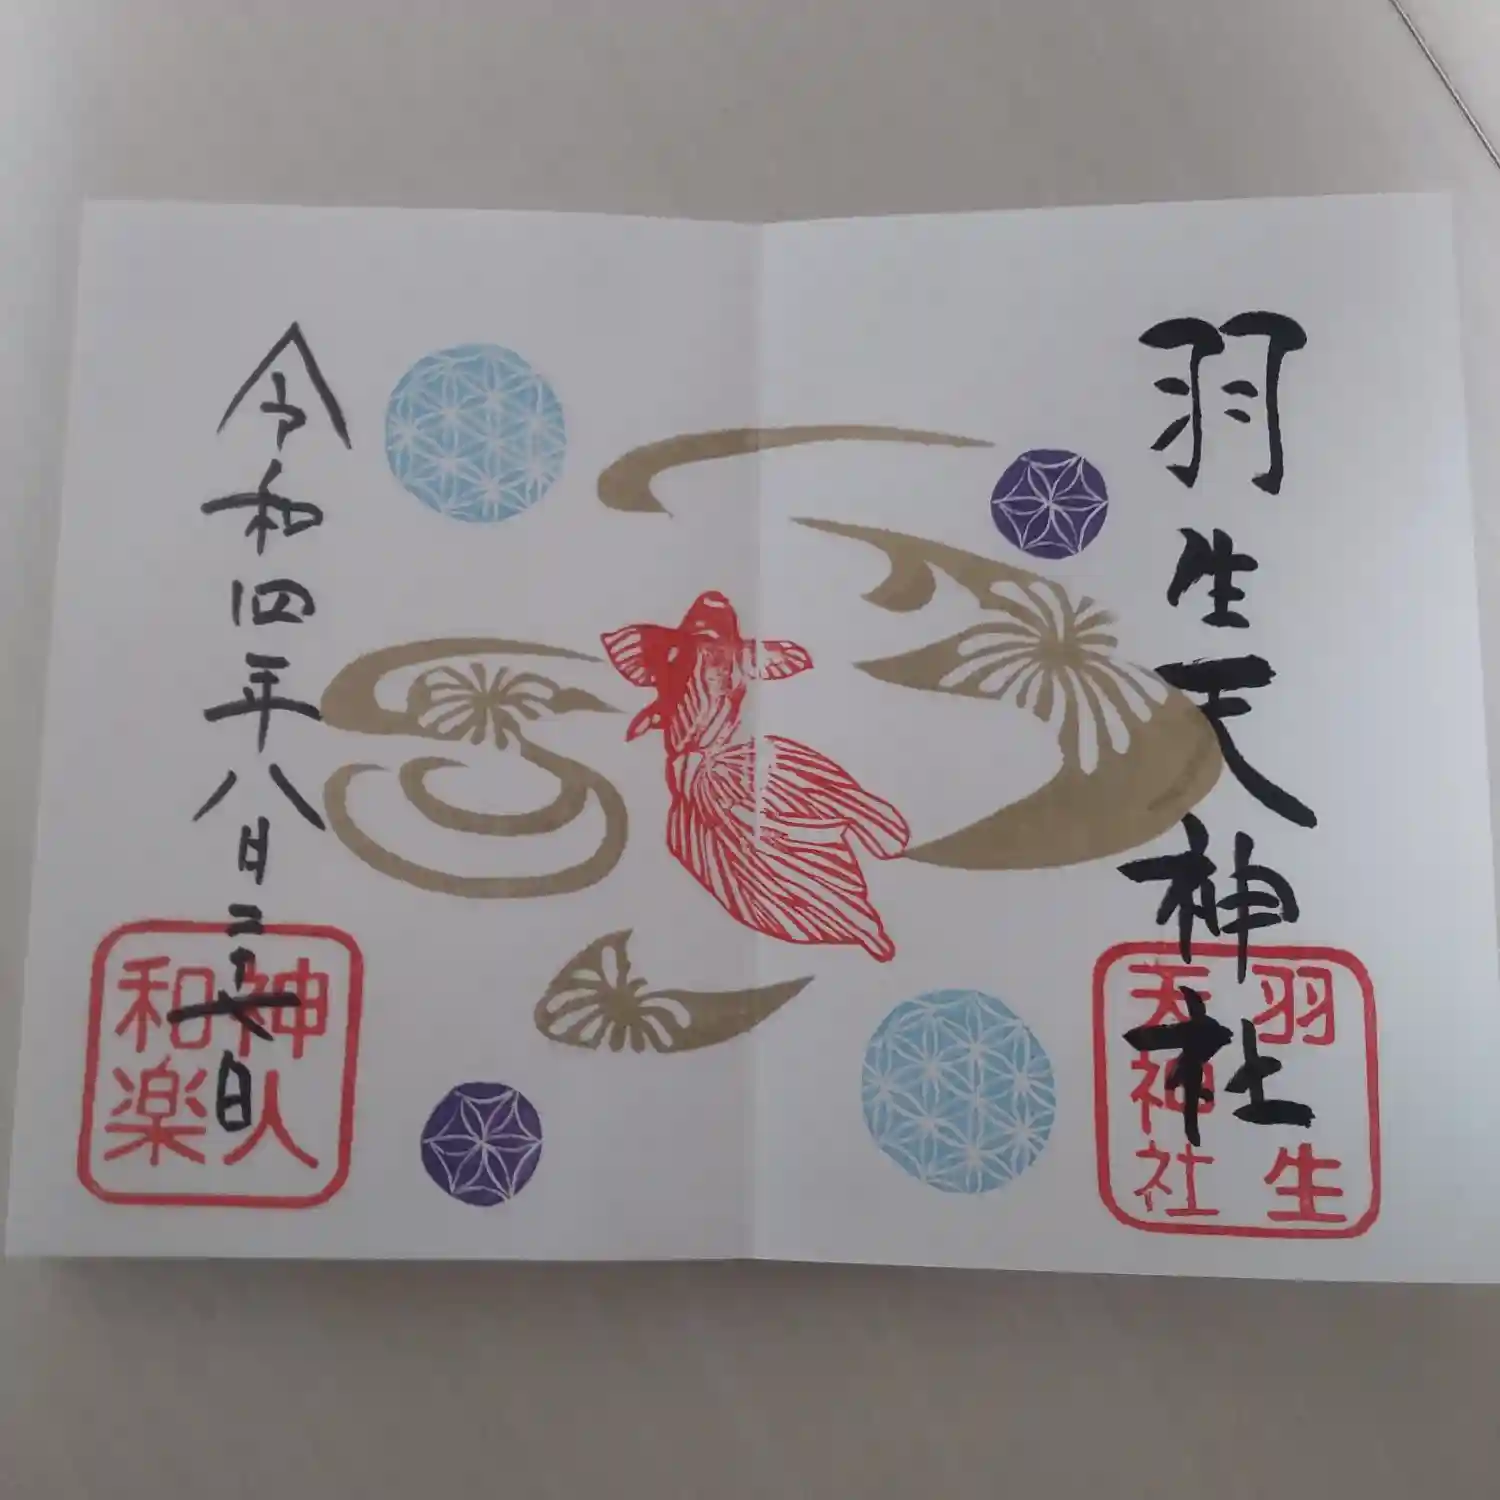 羽生天神社
羽生
天神社
令和四年八月二十七日
神人
和楽